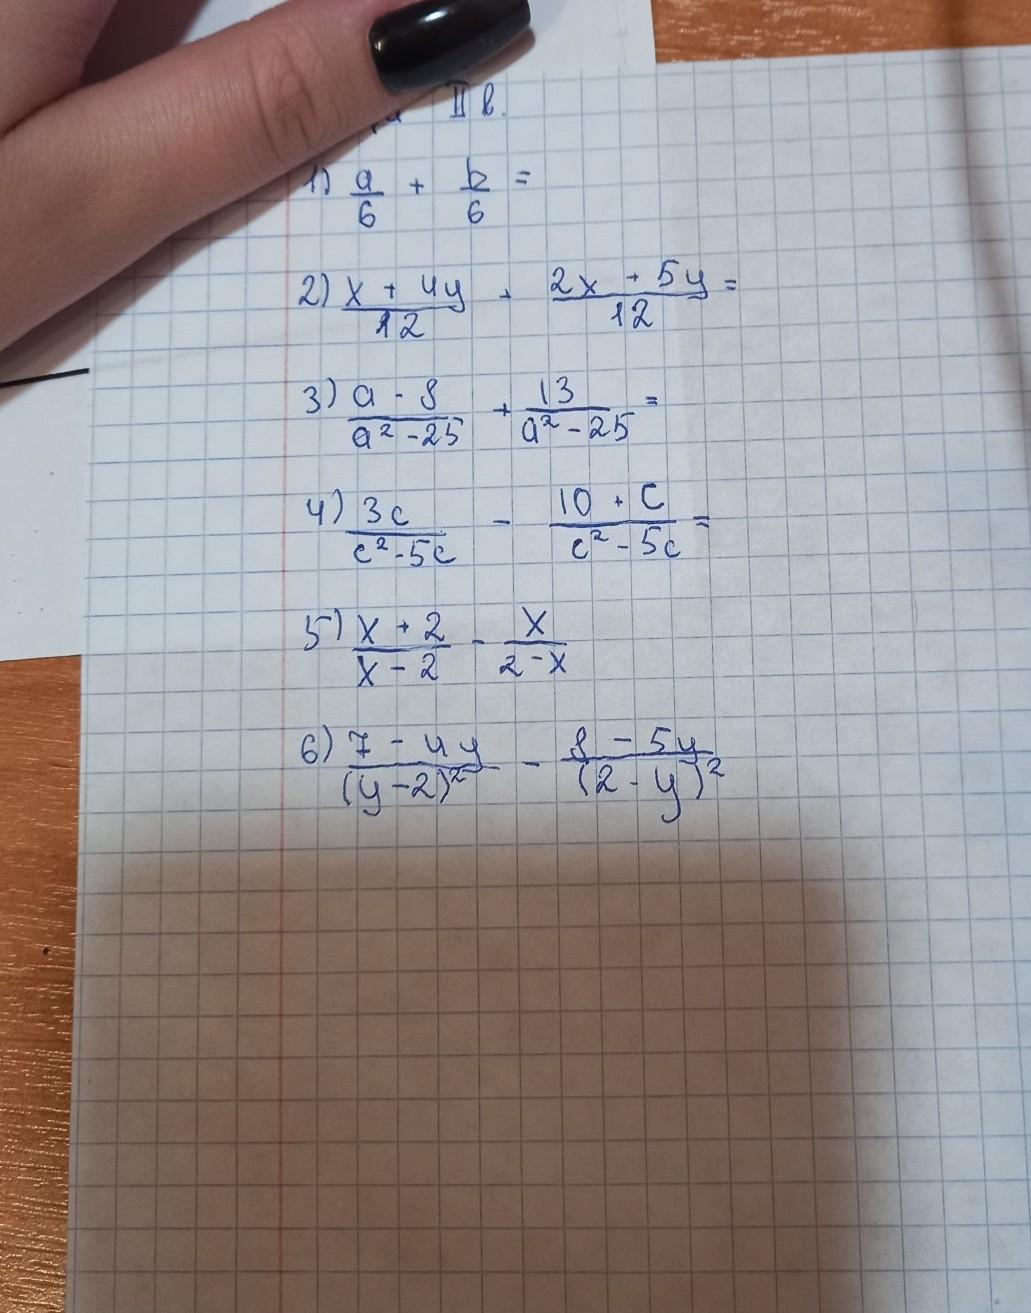 II в.
1) a/6 + b/6 =
2) x + 4y/12 + 2x + 5y/12 =
3) a - 8/a² - 25 + 13/a² - 25 =
4) 3c/c² - 5c - 10 + c/c² - 5c =
5) x + 2/x - 2 - x/2 - x
6) 7 - 4y/(y - 2)² - 8 - 5y/(2 - y)²